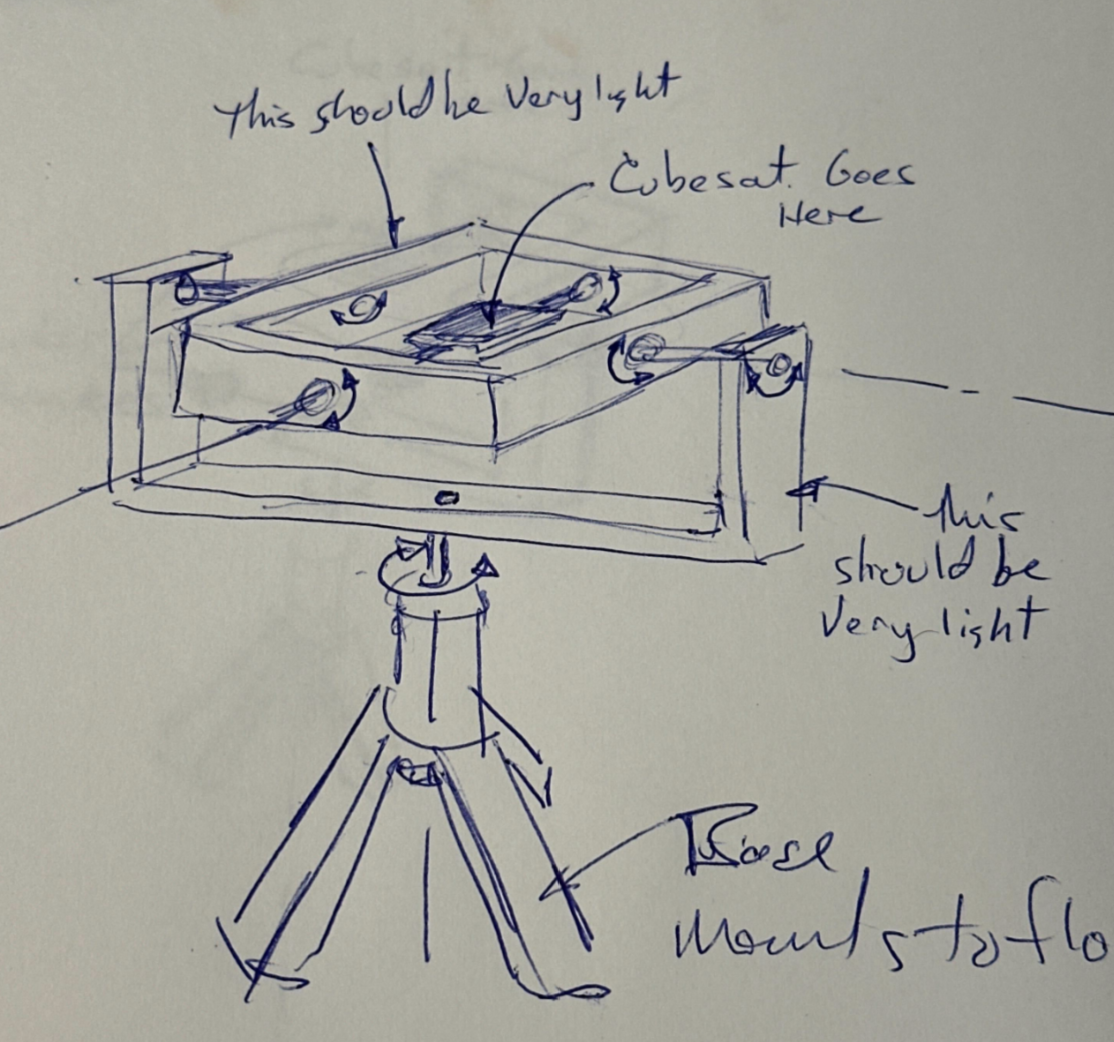 This should be Very light
Cubesat. Goes
Here
This
should be
Very light
Base
mounts to flo